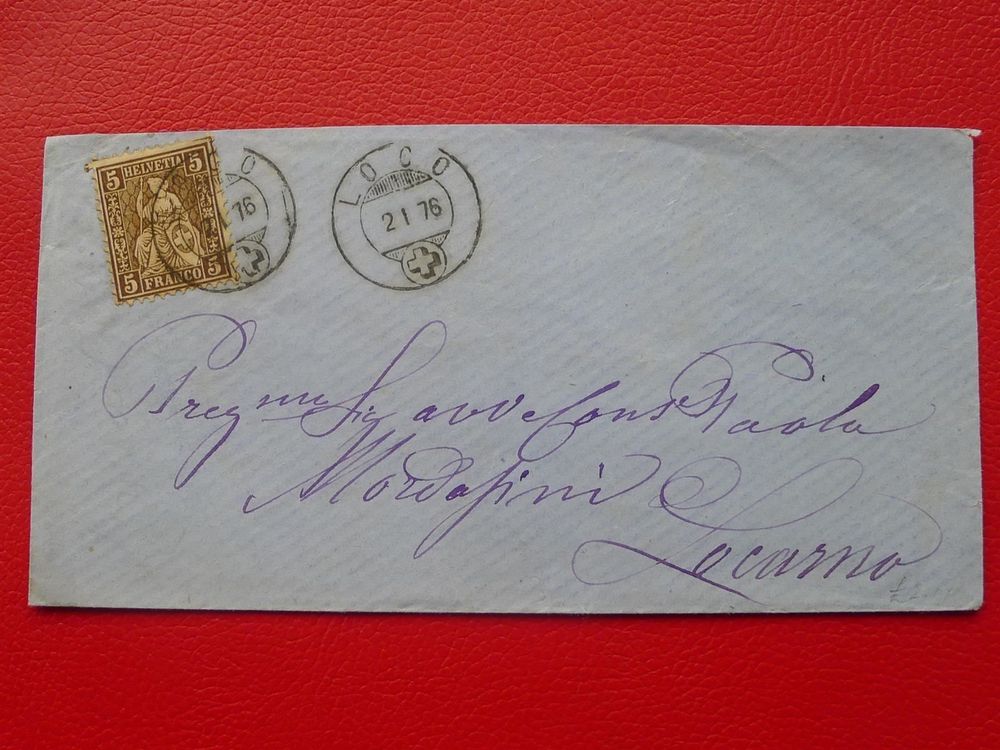 5 HELVETIA 5
5 FRANCO 5
LOCO
76
LOCO
2 I 76
Preg mo Sig avv e Cons e Paolo
Mordasini
Locarno